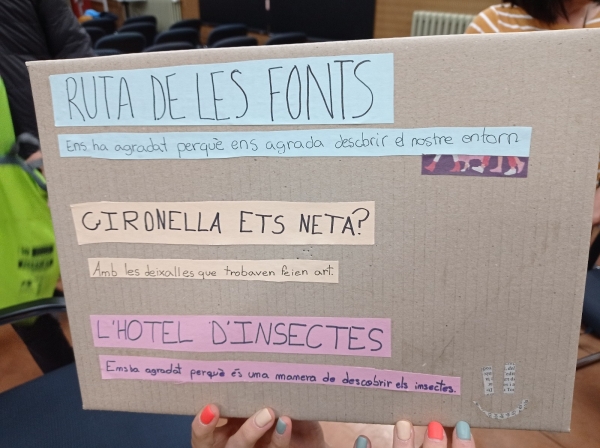 RUTA DE LES FONTS
Ens ha agradat perquè ens agrada descobrir el nostre entorn
GIRONELLA ETS NETA?
Amb les deixalles que trobaven feien art.
L'HOTEL D'INSECTES
Ens ha agradat perquè és una manera de descobrir els insectes.